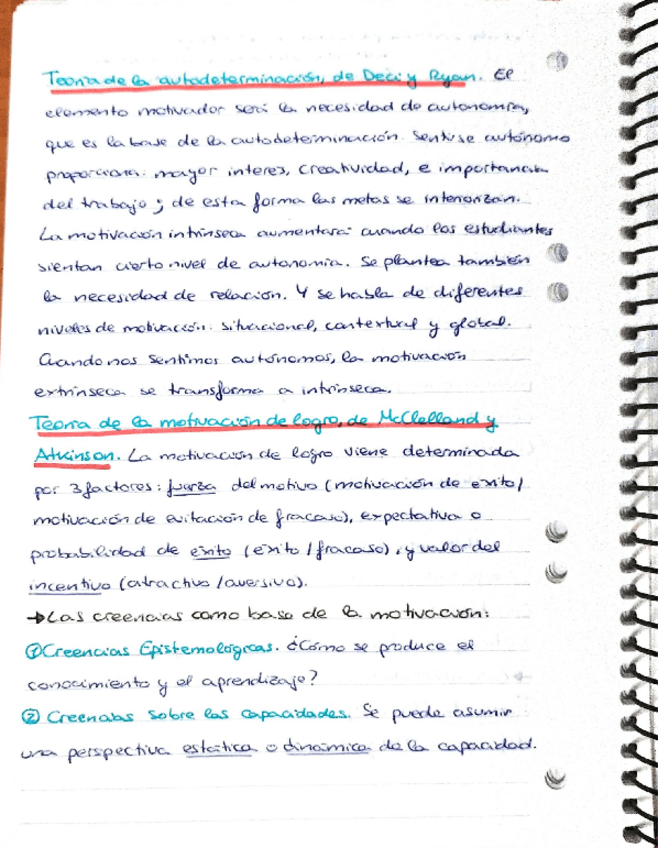 Teoría de la autodeterminación, de Deci y Ryan. El
elemento motivador será la necesidad de autonomía,
que es la base de la autodeterminación. Sentirse autónomo
proporciona: mayor interes, creatividad, e importancia
del trabajo y de esta forma las metas se interiorizan.
La motivación intrínseca aumentará cuando los estudiantes
sientan cierto nivel de autonomía. Se plantea también
la necesidad de relación. Y se habla de diferentes
niveles de motivación: situacional, contextual y global.
Cuando nos sentimos autónomos, la motivación
extrínseca se transforma a intrínseca.
Teoría de la motivación de logro, de McClelland y
Atkinson. La motivación de logro viene determinada
por 3 factores: fuerza del motivo (motivación de exito/
motivación de evitación de fracaso), expectativa o
probabilidad de exito (exito/fracaso), y valor del
incentivo (atractivo/aversivo).
→Las creencias como base de la motivación:
① Creencias Epistemológicas. ¿Cómo se produce el
conocimiento y el aprendizaje?
② Creencias sobre las capacidades. Se puede asumir
una perspectiva estática o dinámica de la capacidad.